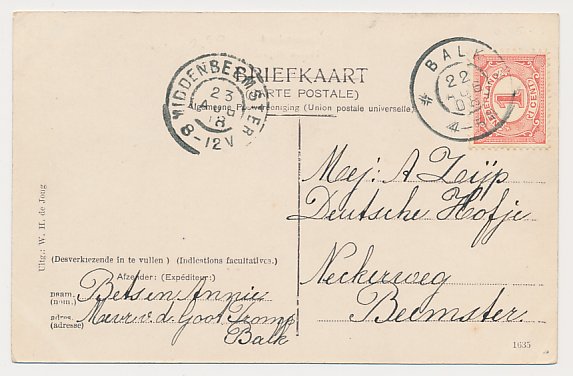 BRIEFKAART
(CARTE POSTALE)
Algemeene Postvereeniging (Union postale universelle)
MIDDENBEEMSTER
23
8-12V
BALK
22
NEDERLAND
1
CENT
Mej: A Zuijp
Deutsche Hofje
Neckerweg
Beemster.
Uitg.: W. H. de Jong
(Desverkiezende in te vullen) (Indications facultatives.)
Afzender: (Expéditeur:)
naam, (nom) Bets en Annie
adres, (adresse) Mevr. v. d. Goot Tromp
Balk
1635